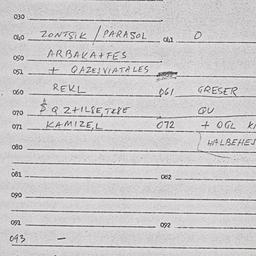 030
040 ZONTSIK / PARASOL 041 O
050 ARBAKANFES
051 + QAZEJVIATALES
060 REKL 061 GRESER
070 GU
071 KAMIZEL 072 + OGL
HALBEHE
080
081 082
090
091 092
093 —